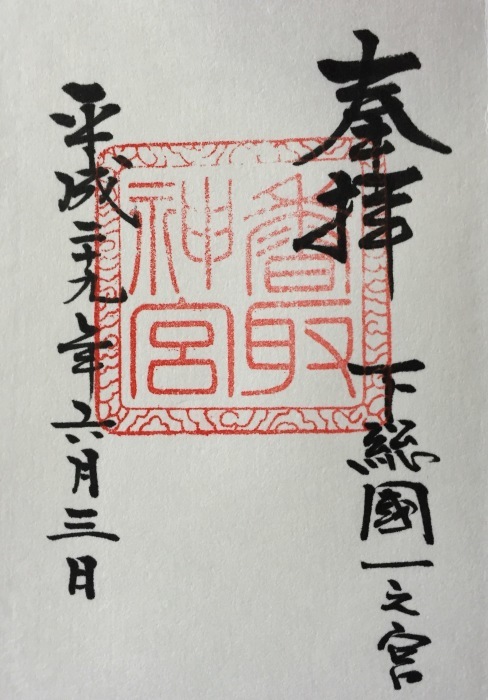 奉拝
下総國一之宮
香取
神宮
平成二十九年六月三日